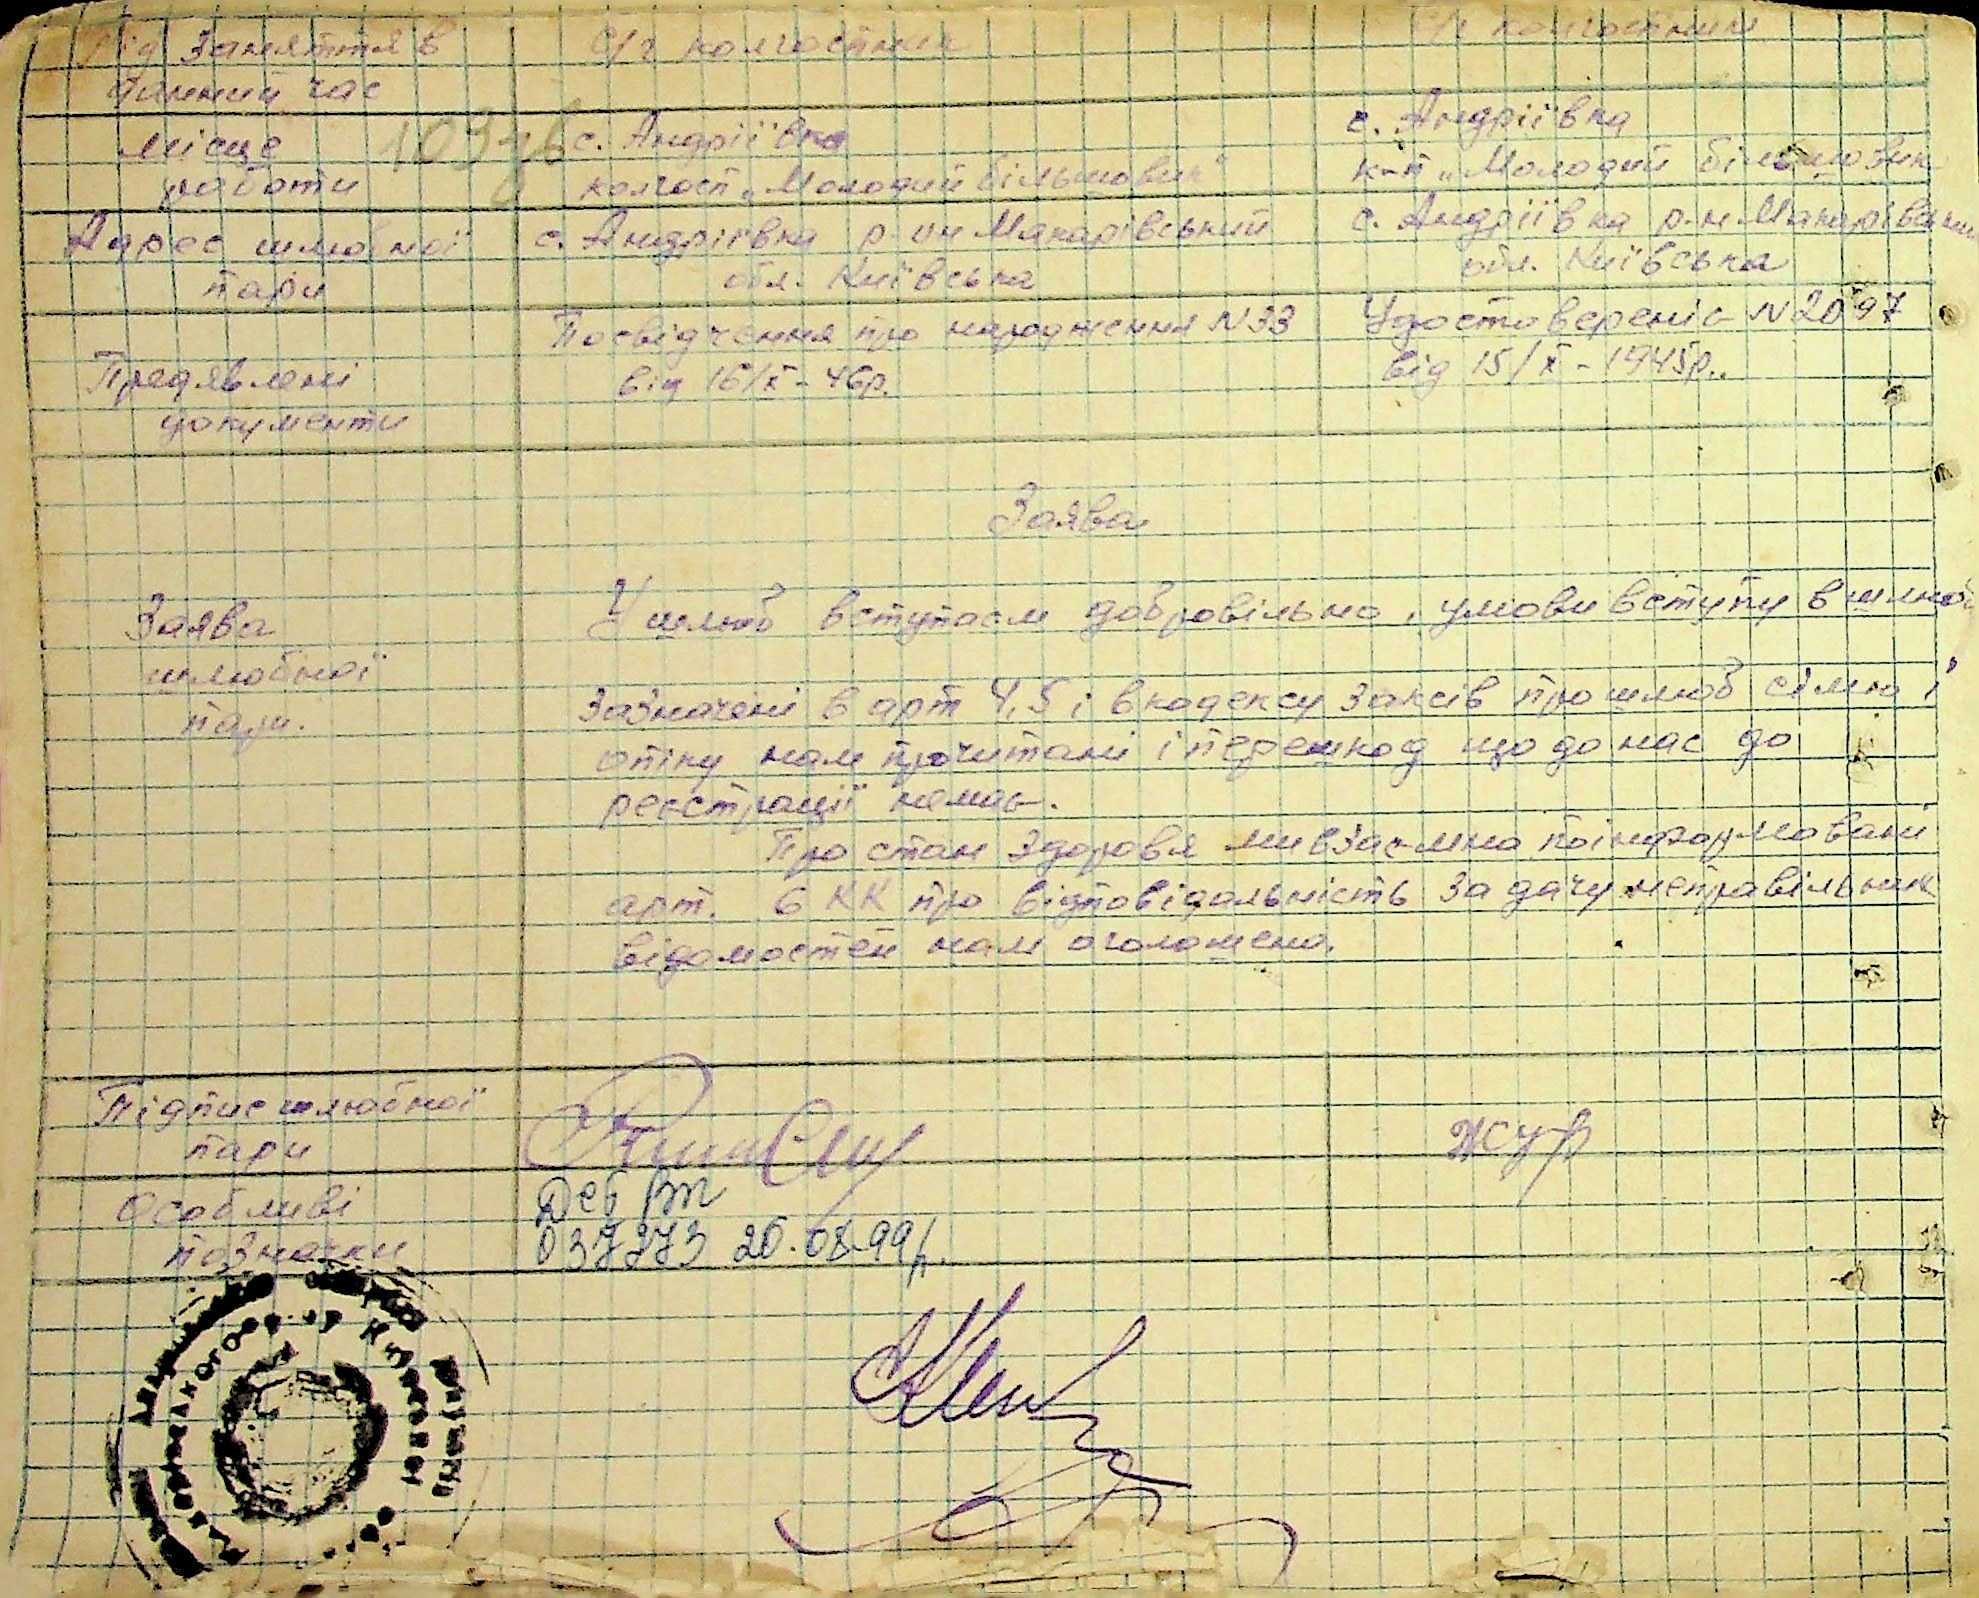 Рід заняття в с/г колгоспник с/г колгоспник
данний час
Місце с. Андріївка с. Андріївка
работи колгосп „Молодий більшовик" к-п „Молодий більшовик
Адрес шлюбної с. Андріївка р-он Макарівський с. Андріївка р-н Макарівський
пари обл. Київська обл. Київська
Посвідчення про народження N 33 Удостовереніє N 2097
Предявлені від 16/X - 46р. від 15/X - 1945р.
документи
Заява
Заява У шлюб вступаєм добровільно, умови вступу в шлюб
шлюбної
пари. зазначені в арт 4, 5 і в кодексу законів про шлюб сімю і
опіку нам прочитані і перешкод що до нас до
реєстрації немає.
Про стан здоровя ми взаємно поінформовані
арт. 6 КК про відповідальність за дачу неправільних
відомостей нам оголошено.
Підпис шлюбної
пари Жур
Особливі
позначки 037273 26.08.99р.